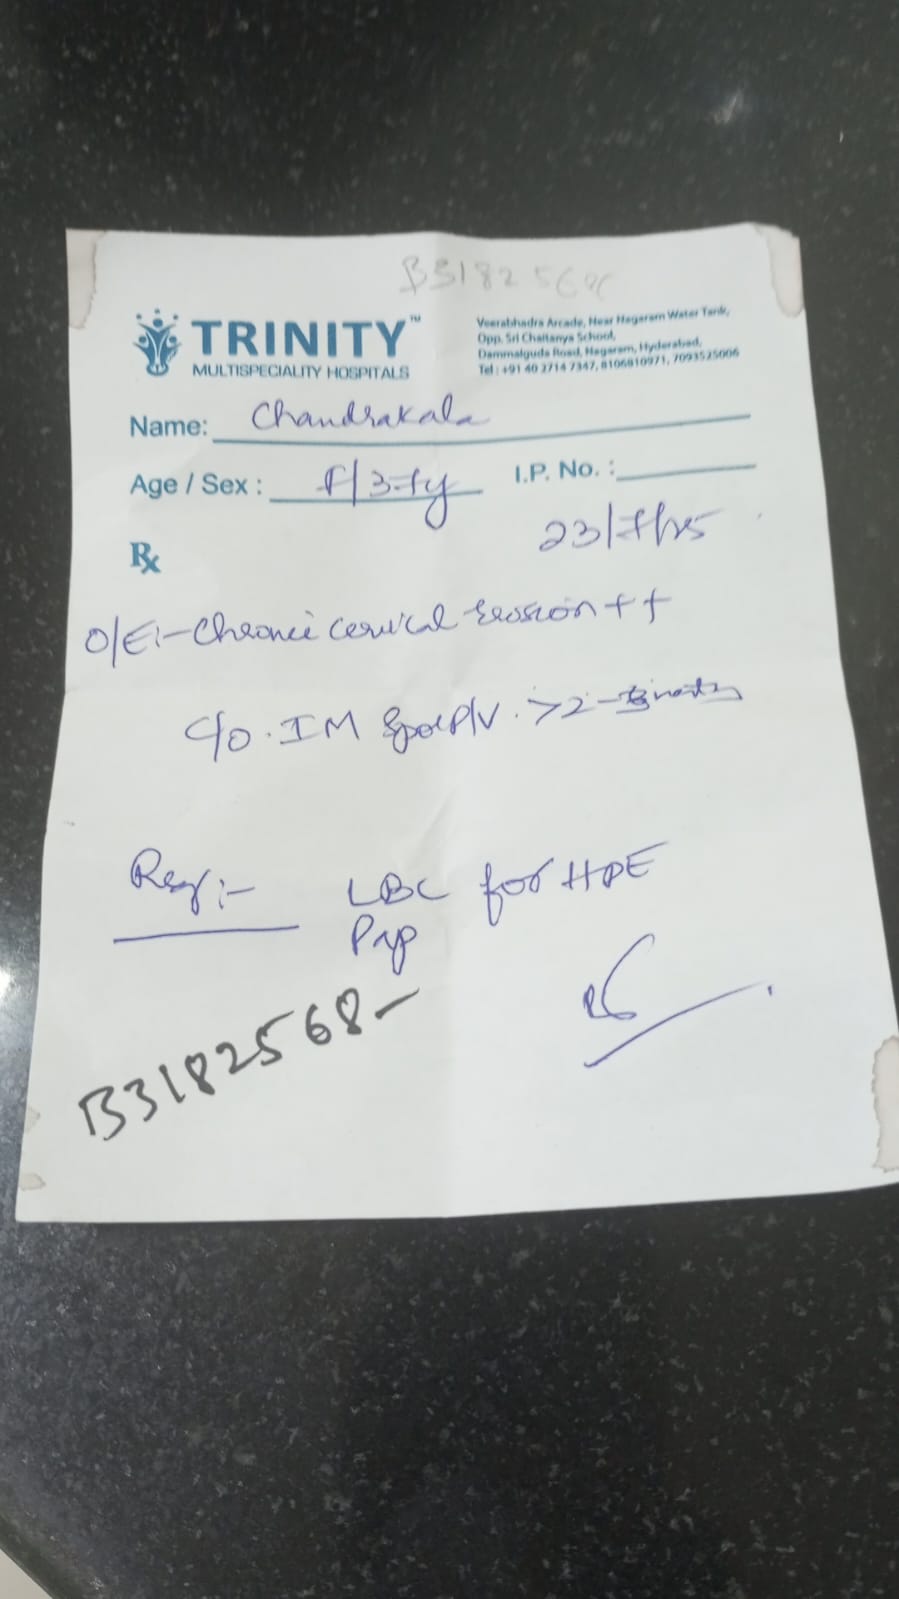 B3182568
TRINITY™
MULTISPECIALITY HOSPITALS
Veerabhadra Arcade, Near Nagaram Water Tank,
Opp. Sri Chaitanya School,
Dammalguda Road, Nagaram, Hyderabad,
Tel : +91 40 2714 7347, 8106810971, 7093525006
Name: Chandrakala
Age / Sex : F/37y I.P. No. :
23/7/25
Rx
O/E:- Chronic cervical erosion ++
C/o. IM P/V. >2-
Req:- LBC for HPE
Pap
B3182568-